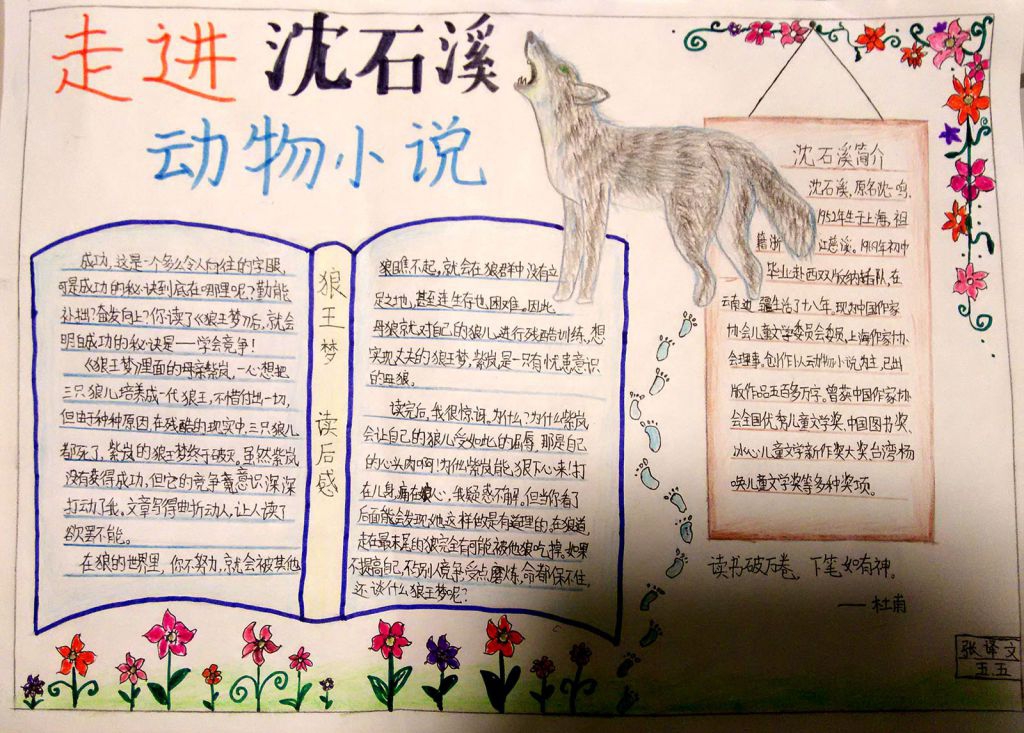 走进 沈石溪
动物小说
成功,这是一个多么令人向往的字眼,
可是成功的秘诀到底在哪里呢?勤能
补拙?奋发向上?你读了《狼王梦》后,就会
明白成功的秘诀是——学会竞争!
《狼王梦》里面的母亲紫岚,一心想把
三只狼儿培养成一代狼王,不惜付出一切,
但由于种种原因,在残酷的现实中,三只狼儿
都死了,紫岚的狼王梦终于破灭。虽然紫岚
没有获得成功,但它的竞争意识深深
打动了我。文章写得曲折动人,让人读了
欲罢不能。
在狼的世界里,你不努力,就会被其他
狼王梦 读后感
狼瞧不起,就会在狼群中没有立
足之地,甚至连生存也困难。因此,
母狼就对自己的狼儿进行残酷训练。想
实现丈夫的狼王梦,紫岚是一只有忧患意识
的母狼。
读完后,我很惊讶。为什么?为什么紫岚
会让自己的狼儿受如此的屈辱,那是自己
的心头肉啊!为什么紫岚能狠下心来!打
在儿身,痛在娘心,我疑惑不解。但当你看了
后面能会发现:她这样做是有道理的,在狼道,
走在最末尾的狼完全有可能被他狼吃掉。如果
不提高自己,不与别人竞争,受点磨炼,命都保不住,
还谈什么狼王梦呢?
沈石溪简介
沈石溪,原名沈一鸣,
1952年生于上海,祖
籍浙江慈溪。1969年初中
毕业赴西双版纳插队,在
云南边疆生活了十八年。现为中国作家
协会儿童文学委员会委员,上海作家协
会理事。创作以动物小说为主,已出
版作品五百多万字。曾获中国作家协
会全国优秀儿童文学奖、中国图书奖、
冰心儿童文学新作奖大奖、台湾杨
唤儿童文学奖等多种奖项。
读书破万卷,下笔如有神。
——杜甫
张译文
五.五